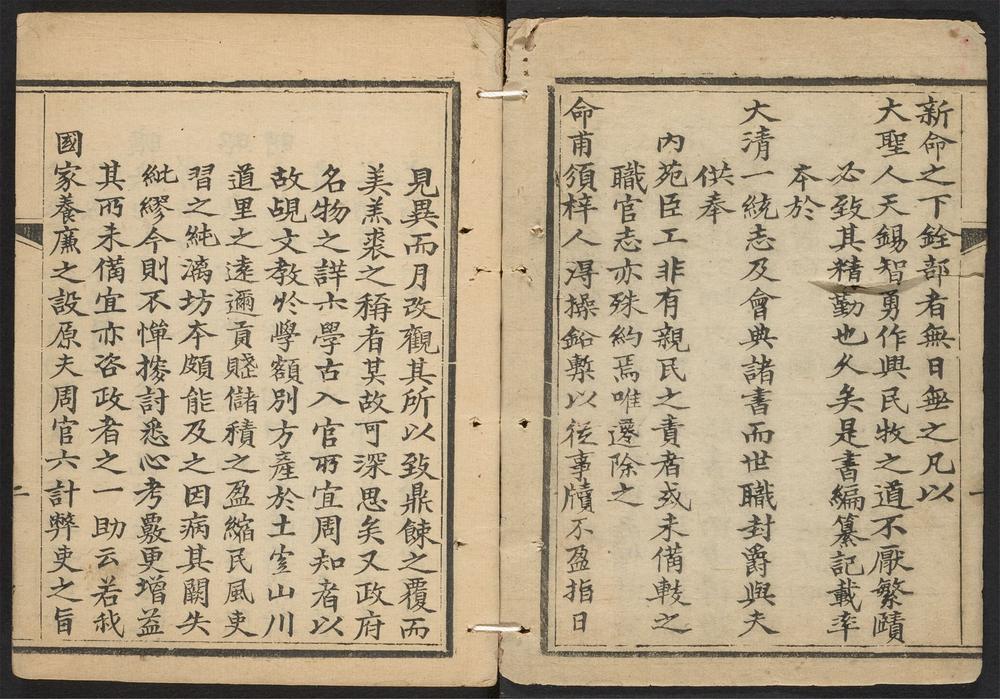 新命之下銓部者無日無之凡以
大聖人天錫智勇作興民牧之道不厭繁賾
必致其精勤也久矣是書編纂記載率
夲於
大清一統志及會典諸書而世職封爵與夫
供奉
內苑臣工非有親民之責者或未備輓之
職官志亦殊約焉唯遷除之
命甫須梓人淂操鉛槧以從事牘不盈指日
見異而月改觀其所以致鼎餗之覆而
美羔裘之稱者其故可深思矣又政府
名物之詳六學古入官所宜周知者以
故覘文教於學額別方產於土宜山川
道里之遠邇貢賤儲積之盈縮民風吏
習之純漓坊夲頗能及之因病其闕失
紕繆今則不憚搜討悉心考覈更增益
其所未備宜亦咨政者之一助云若我
國家養廉之設原夫周官六計弊吏之旨
二